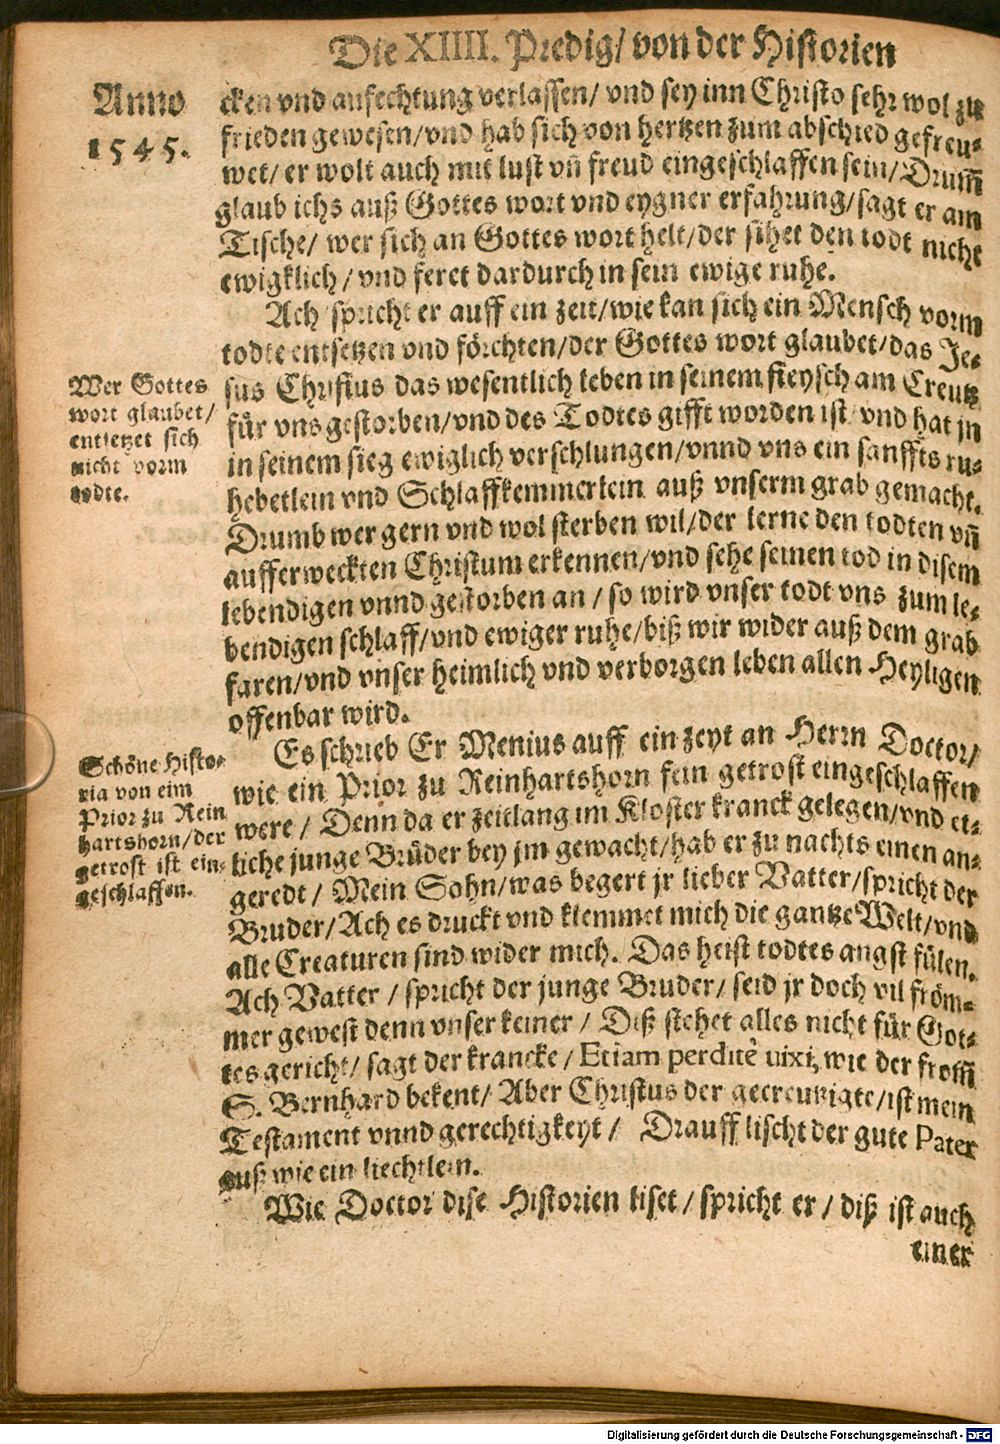 Die XIIII. Predig/ von der Historien
Anno
1545.
cken vnd anfechtung verlassen/ vnd sey inn Christo sehr wol zu
frieden gewesen/vnd hab sich von hertzen zum abschied gefreu-
wet/ er wolt auch mit lust vñ freud eingeschlaffen sein/Drum̃
glaub ichs auß Gottes wort vnd eygner erfahrung/sagt er am
Tische/ wer sich an Gottes wort helt/der sihet den todt nicht
ewigklich/ vnd feret dardurch in sein ewige ruhe.
Ach spricht er auff ein zeit/wie kan sich ein Mensch vorm
todte entsetzen vnd förchten/der Gottes wort glaubet/das Je-
sus Christus das wesentlich leben in seinem fleysch am Creutz
für vns gestorben/vnd des Todtes gifft worden ist/ vnd hat jn
in seinem sieg ewiglich verschlungen/vnnd vns ein sanffts ru-
hebetlein vnd Schlaffkemmerlein auß vnserm grab gemacht.
Drumb wer gern vnd wol sterben wil/der lerne den todten vñ
aufferweckten Christum erkennen/vnd sehe seinen tod in disem
lebendigen vnnd gestorben an / so wird vnser todt vns zum le-
bendigen schlaff/vnd ewiger ruhe/biß wir wider auß dem grab
faren/vnd vnser heimlich vnd verborgen leben allen Heyligen
offenbar wird.
Wer Gottes
wort glaubet/
entsetzet sich
nicht vorm
todte.
Es schrieb Er Menius auff ein zeyt an Herrn Doctor/
wie ein Prior zu Reinhartshorn fein getrost eingeschlaffen
were / Denn da er zeitlang im Kloster kranck gelegen/vnd et-
liche junge Brüder bey jm gewacht/hab er zu nachts einen an-
geredt / Mein Sohn/was begert jr lieber Vatter/spricht der
Bruder/Ach es druckt vnd klemmet mich die gantze Welt/vnd
alle Creaturen sind wider mich. Das heist todtes angst fülen.
Ach Vatter / spricht der junge Bruder/ seid jr doch vil fröm-
mer gewest denn vnser keiner / Diß stehet alles nicht für Got-
tes gericht/ sagt der krancke / Etiam perditè uixi, wie der from̃
S. Bernhard bekent/ Aber Christus der gecreutzigte/ist mein
Testament vnnd gerechtigkeyt / Drauff lischt der gute Pater
auß wie ein liechtlein.
Schöne Histo-
ria von eim
Prior zu Rein
hartshorn/der
getrost ist ein-
geschlaffen.
Wie Doctor dise Historien liset / spricht er / diß ist auch
einer
Digitalisierung gefördert durch die Deutsche Forschungsgemeinschaft - DFG